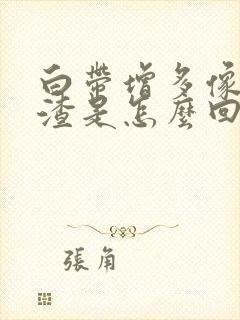 白带增多像
渣是怎麼回
張角